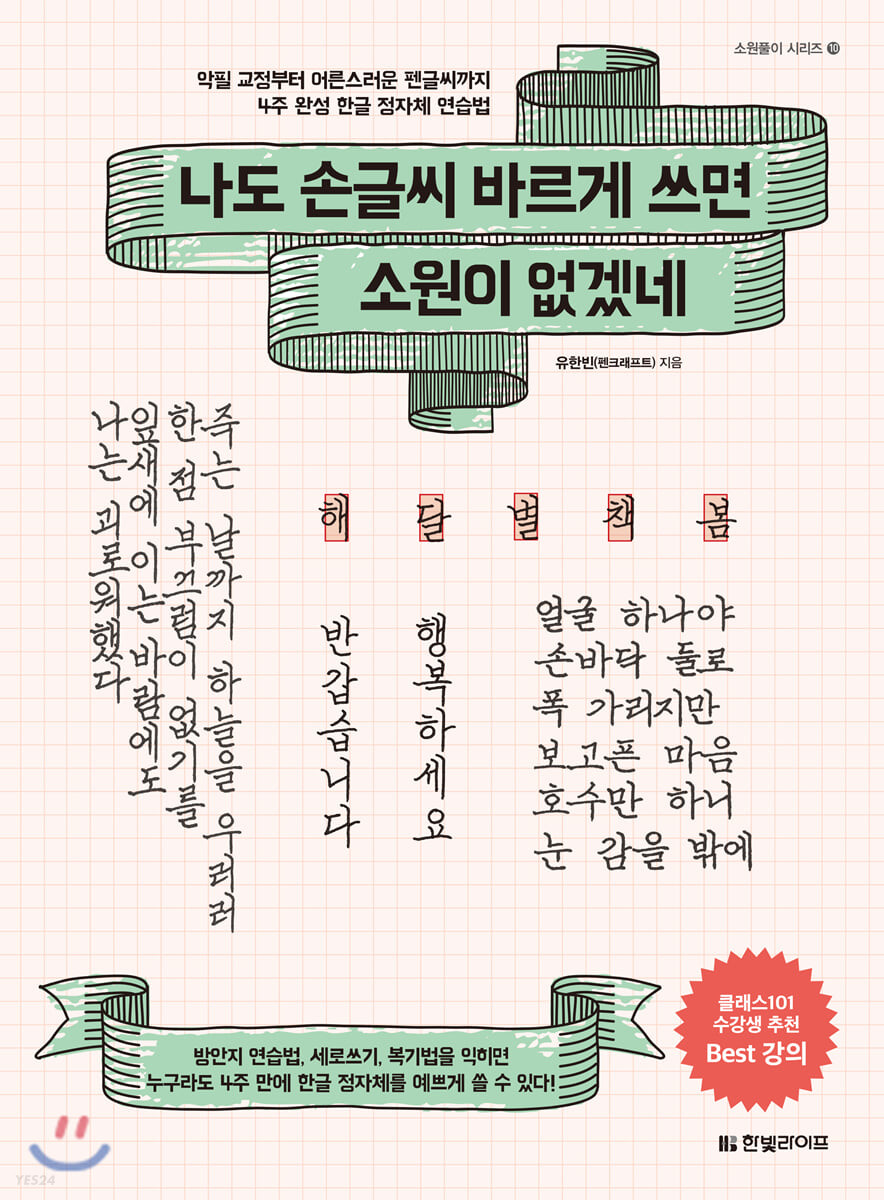 소원풀이 시리즈 10
악필 교정부터 어른스러운 펜글씨까지
4주 완성 한글 정자체 연습법
나도 손글씨 바르게 쓰면
소원이 없겠네
유한빈(펜크래프트) 지음
죽는 날까지 하늘을 우러러
한 점 부끄럼이 없기를
잎새에 이는 바람에도
나는 괴로워했다
해 달 별 책 봄
반갑습니다
행복하세요
얼굴 하나야
손바닥 둘로
폭 가리지만
보고픈 마음
호수만 하니
눈 감을 밖에
방안지 연습법, 세로쓰기, 복기법을 익히면
누구라도 4주 만에 한글 정자체를 예쁘게 쓸 수 있다!
클래스101
수강생 추천
Best 강의
한빛라이프
YES24